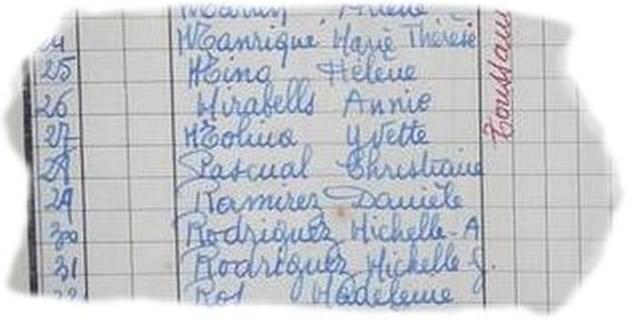 24 Manrique Marie Thérèse
25 Mina Hélène
26 Mirabells Annie
27 Molina Yvette
28 Pascual Christiane
29 Ramirez Danièle
30 Rodriguez Michelle-A
31 Rodriguez Michelle J.
32 Ros Madeleine
Toussain